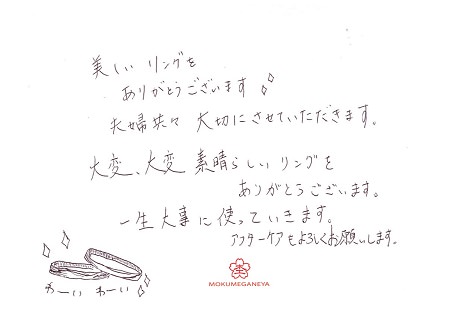 美しい リングを
ありがとうございます
夫婦共々 大切にさせていただきます。
大変、大変 素晴らしい リングを
ありがとうございます。
一生大事に使っていきます。
アフターケアもよろしくお願いします。
わーい わーい
MOKUMEGANEYA